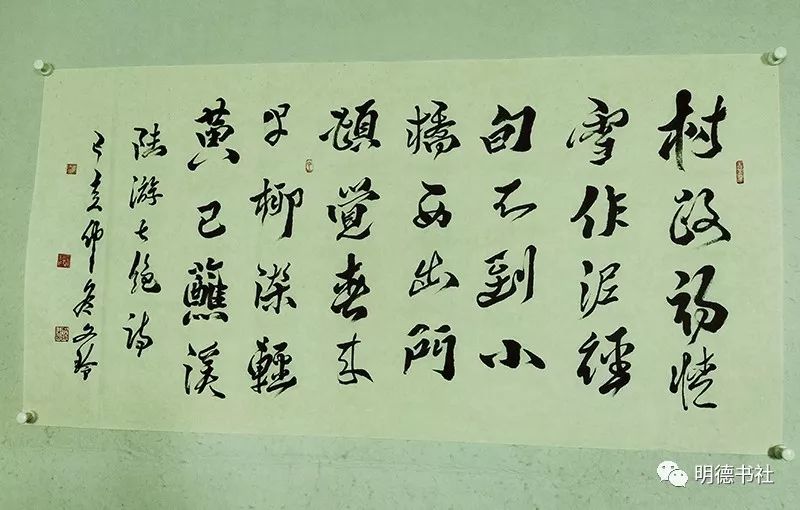 村路初晴
雪作泥經
旬不到小
橋西出門
頓覺春来
早柳染輕
黄已蘸溪
陸游七絶詩
己亥仲冬文
明德书社